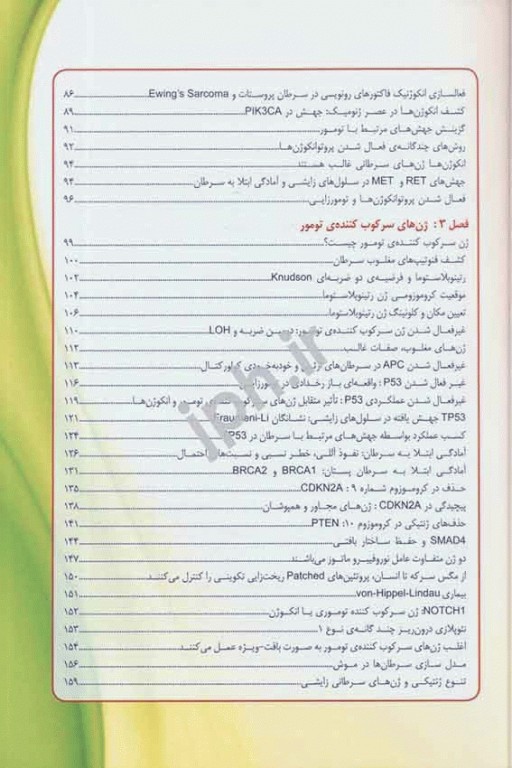 فعالسازی انکوژنیک فاکتورهای رونویسی در سرطان پروستات و Ewing's Sarcoma ۸۶
کشف انکوژن‌ها در عصر ژنومیک: جهش در PIK3CA ۸۹
گزینش جهش‌های مرتبط با تومور ۹۱
روش‌های چندگانه‌ی فعال شدن پروتوانکوژن‌ها ۹۲
انکوژن‌ها ژن‌های سرطانی غالب هستند ۹۴
جهش‌های RET و MET در سلول‌های زایشی و آمادگی ابتلا به سرطان ۹۴
فعال شدن پروتوانکوژن‌ها و تومورزایی ۹۶
فصل ۳ : ژن‌های سرکوب کننده‌ی تومور
ژن سرکوب کننده‌ی تومور چیست؟ ۹۹
کشف فنوتیپ‌های مغلوب سرطان ۱۰۰
رتینوبلاستوما و فرضیه‌ی دو ضربه‌ای Knudson ۱۰۲
موقعیت کروموزومی ژن رتینوبلاستوما ۱۰۴
تعیین مکان و کلونینگ ژن رتینوبلاستوما ۱۰۶
غیرفعال شدن ژن سرکوب کننده‌ی تومور: دومین ضربه و LOH ۱۱۰
ژن‌های مغلوب، صفات غالب ۱۱۲
غیرفعال شدن APC در سرطان‌های ارثی و خودبه‌خودی کولورکتال ۱۱۳
غیر فعال شدن P53 : واقعه‌ای باز رخدادی در تومورزایی ۱۱۶
غیرفعال شدن عملکردی P53 : تأثیر متقابل ژن‌های سرکوب کننده‌ی تومور و انکوژن‌ها ۱۱۹
TP53 جهش یافته در سلول‌های زایشی: نشانگان Fraumeni-Li ۱۲۱
کسب عملکرد بواسطه جهش‌های مرتبط با سرطان در TP53 ۱۲۴
آمادگی ابتلا به سرطان: نفوذ آللی، خطر نسبی و نسبت‌های احتمال ۱۲۶
آمادگی ابتلا به سرطان پستان: BRCA1 و BRCA2 ۱۳۱
حذف در کروموزوم شماره ۹ : CDKN2A ۱۳۵
پیچیدگی در CDKN2A : ژن‌های مجاور و همپوشان ۱۳۸
حذف‌های ژنتیکی در کروموزوم ۱۰: PTEN ۱۴۱
SMAD4 و حفظ ساختار بافتی ۱۴۴
دو ژن متفاوت عامل نوروفیبرو ماتوز می‌باشند ۱۴۷
از مگس سرکه تا انسان، پروتئین‌های Patched ریخت‌زایی تکوینی را کنترل می‌کنند ۱۵۰
بیماری von-Hippel-Lindau ۱۵۱
NOTCH1: ژن سرکوب کننده توموری یا انکوژن ۱۵۲
نئوپلازی درون‌ریز چند گانه‌ی نوع ۱ ۱۵۳
اغلب ژن‌های سرکوب کننده‌ی تومور به صورت بافت-ویژه عمل می‌کنند ۱۵۴
مدل سازی سرطان‌ها در موش ۱۵۶
تنوع ژنتیکی و ژن‌های سرطانی زایشی ۱۵۹
iph.ir